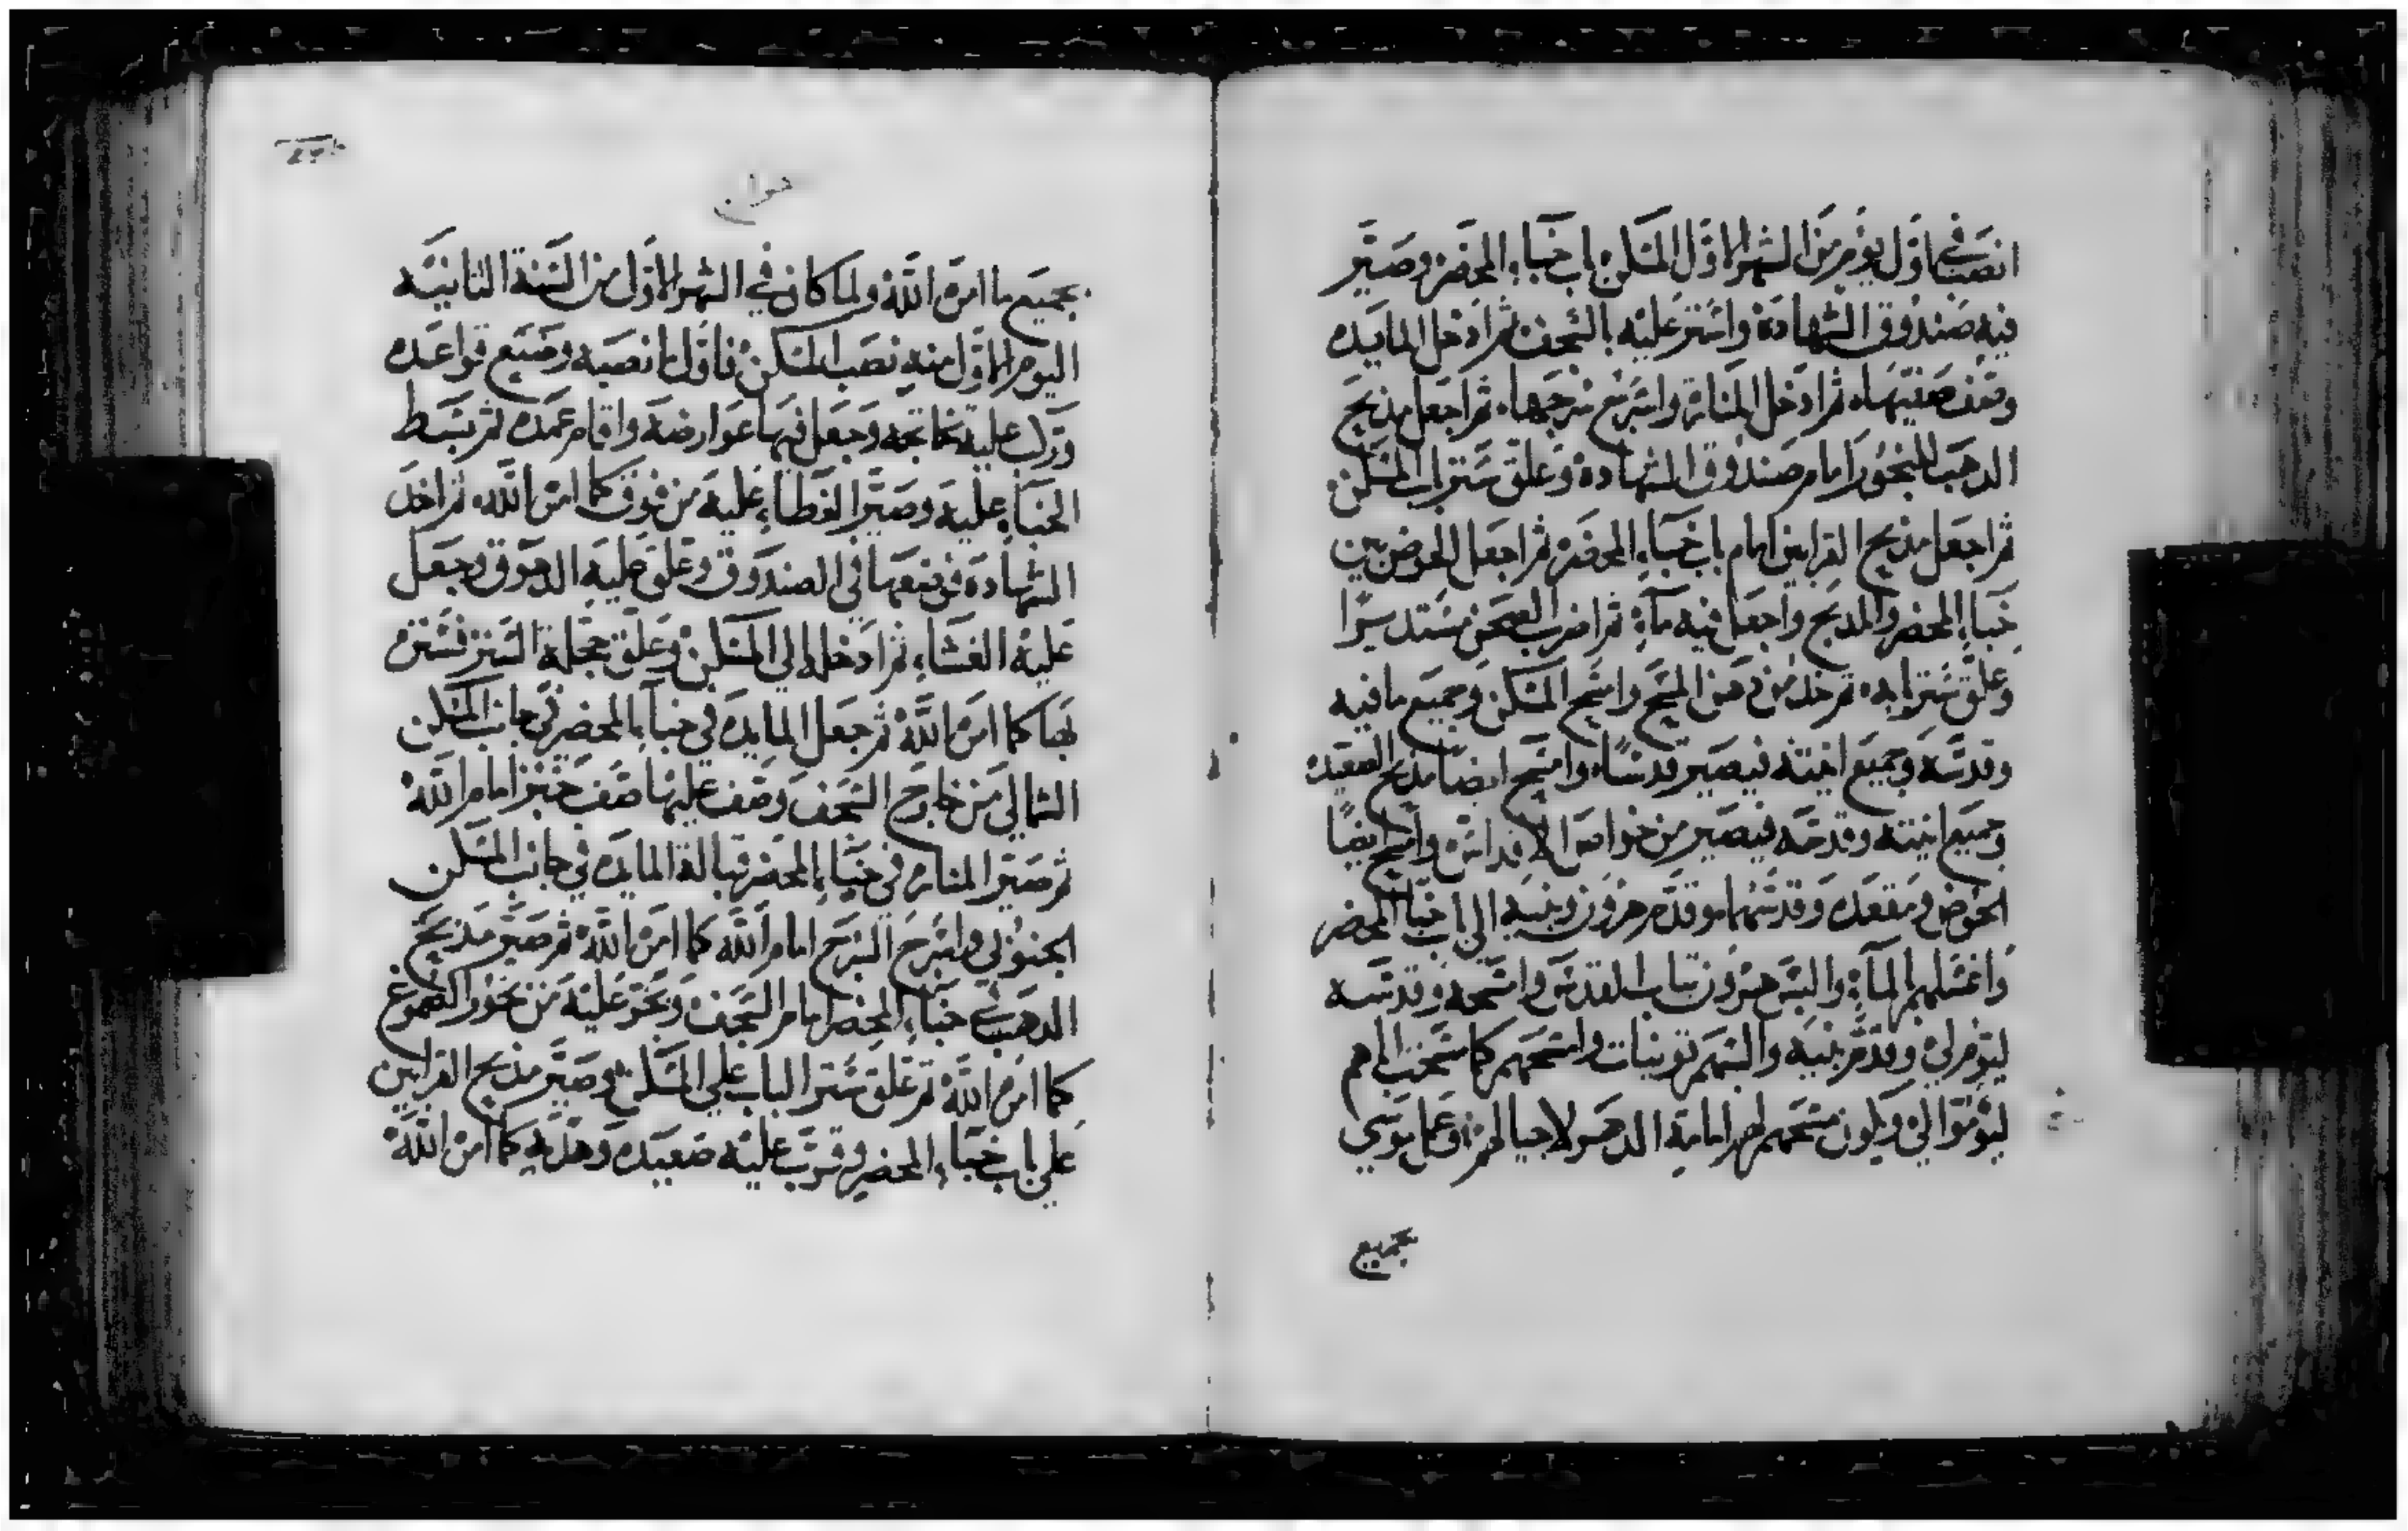 انصب في اول يوم من الشهر الاول المسكن باب خباء المحضر وصير
فيه صندوق الشهادة واستر عليه بالسجف ثم ادخل المايده
وصف صفتيها ثم ادخل المناره واسرج سرجها ثم اجعل مذبح
الدهب للبخور امام صندوق الشهادة وعلق ستر باب المسكن
ثم اجعل مذبح القرابين امام باب خباء المحضر ثم اجعل الحوض بين
خباء المحضر والمدبح واجعل فيه ماء ثم اضرب الصحن مستديرًا
وعلق ستر بابه ثم خذ من دهن المسح وامسح المسكن وجميع ما فيه
وقدسه وجميع انيته فيصير قدسًا وامسح ايضًا مذبح الصعيده
وجميع انيته وقدسه فيصير من خواص الاقداس وامسح ايضًا
الحوض ومقعده وقدسهما وقدم هرون وبنيه الى باب خباء المحضر
واغسلهم بالماء والبس هرون تياب القدس وامسحه وقدسه
ليؤم لي وقدم بنيه والبسهم تونيات وامسحهم كما مسحت اباهم
ليؤموا لي ويكون مسحهم لهم امامة الدهر لاجيالهم وعمل موسي
بجميع
بجميع ما امره الله ولما كان في الشهر الاول من السنة الثانيه
اليوم الاول منه نصب المسكن فاول ما نصبه وضع قواعده
وترك عليه تخاتجه وجعل فيها عوارضه واقام عمده ثم بسط
الخباء عليه وصير الغطاء عليه من فوق كما امره الله ثم اخذ
الشهادة فوضعها في الصندوق وعلق عليه الدهوق وجعل
عليه الغشاء ثم ادخله الى المسكن وعلق عجلة الستر فستر
بها كما امره الله ثم جعل المايده في خباء المحضر في جانب المسكن
الشمالي من خارج السجف وصف عليها صف خبز امام الله
ثم صير المناره في خباء المحضر قبالة المايده في جانب المسكن
الجنوبي واسرج السرج امام الله كما امره الله ثم صير مذبح
الدهب في خباء المحضر امام السجف وبخر عليه من بخور الصموغ
كما امره الله ثم علق ستر الباب علي المسكن وصير مذبح القرابين
علي باب خباء المحضر وقرب عليه صعيده وهديه كما امره الله